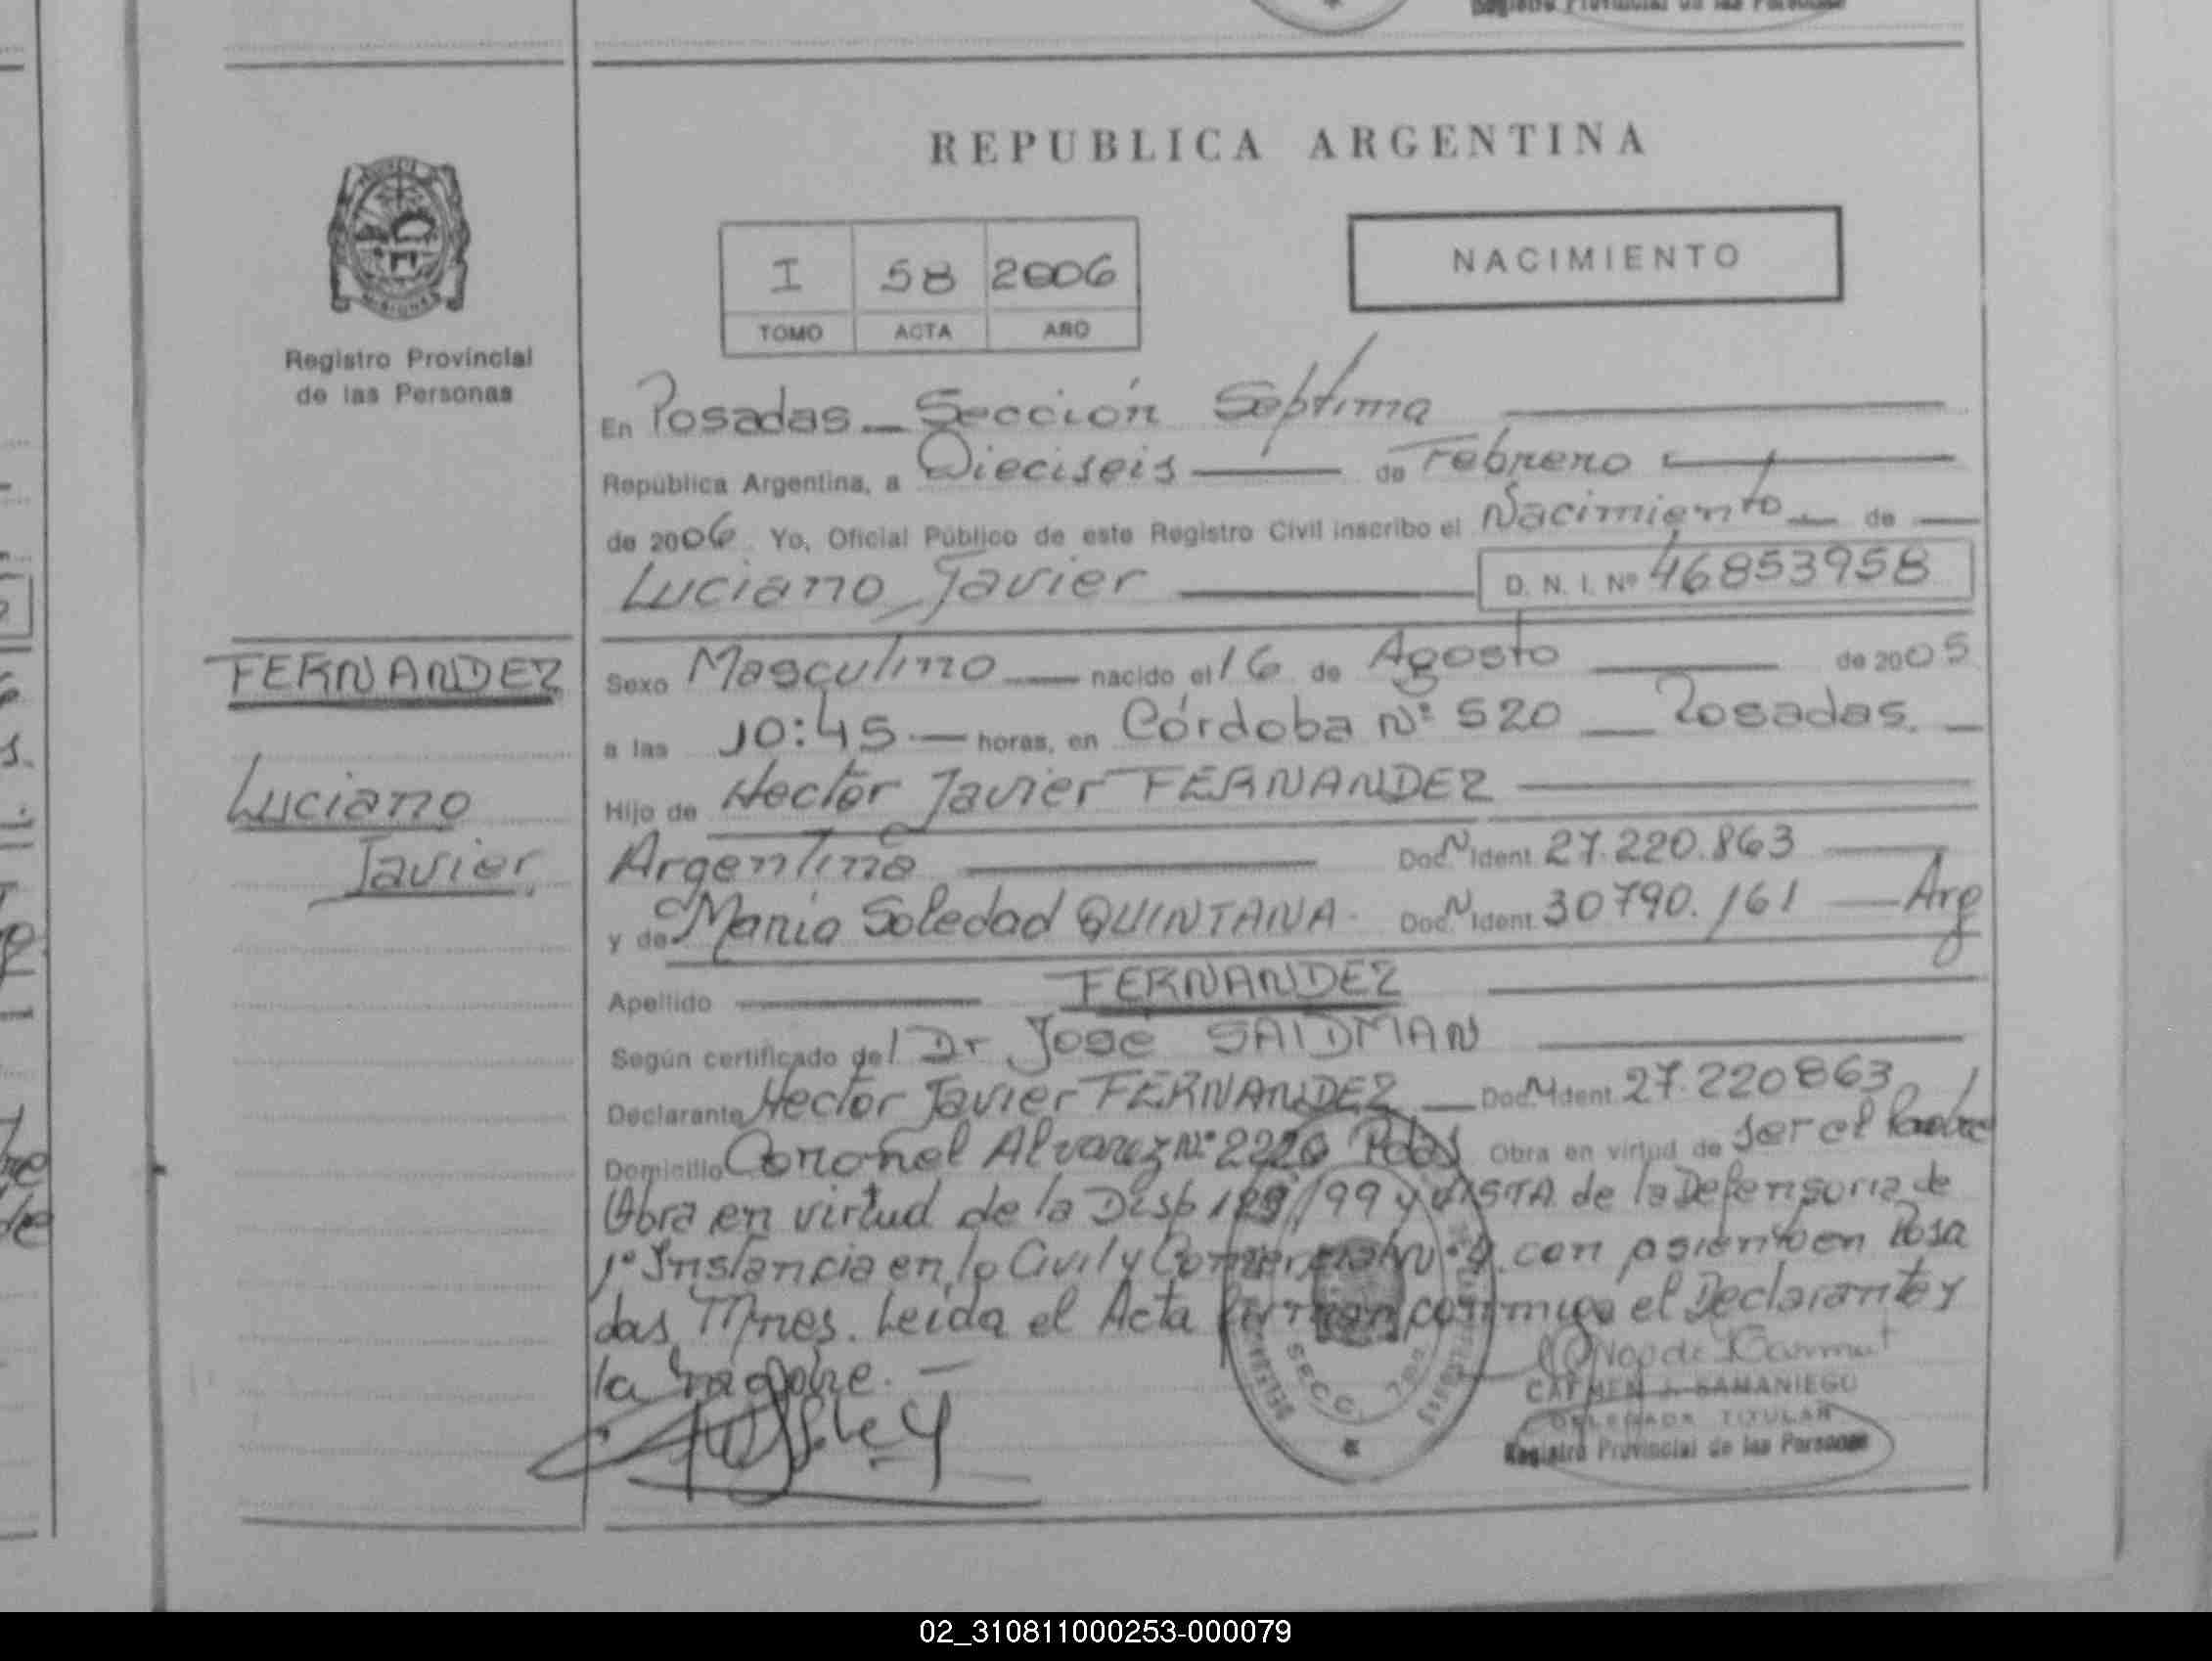 Registro Provincial de las Personas
REPUBLICA ARGENTINA
I 58 2006
TOMO ACTA AÑO
NACIMIENTO
Registro Provincial
de las Personas
En Posadas _ Sección Séptima
República Argentina, a Dieciseis de Febrero
de 2006 Yo, Oficial Público de este Registro Civil inscribo el Nacimiento de
Luciano Javier D. N. I. Nº 46853958
FERNANDEZ
Luciano
Javier.
Sexo Masculino nacido el 16 de Agosto de 2005
a las 10:45 horas, en Córdoba Nº 520 _ Posadas.
Hijo de Hector Javier FERNANDEZ
Argentina Doc. N Ident. 27.220.863
y de Maria Soledad QUINTANA Doc. N Ident. 30790.161 Arg
Apellido FERNANDEZ
Según certificado del Dr José SAIDMAN
Declarante Hector Javier FERNANDEZ Doc. N Ident. 27.220863
Domicilio Coronel Alvarez Nº 2220 Pdas Obra en virtud de ser el Padre
Obra en virtud de la Disp /99 y VISTA de la Defensoria de
1º Instancia en lo Civil y Comercial Nº 4 con asiento en Posa
das Mnes. Leida el Acta firman conmigo el Declarante y
la madre.
SECC. 7
CARMEN J. SAMANIEGO
DELEGADA TITULAR
Registro Provincial de las Personas
02_310811000253-000079